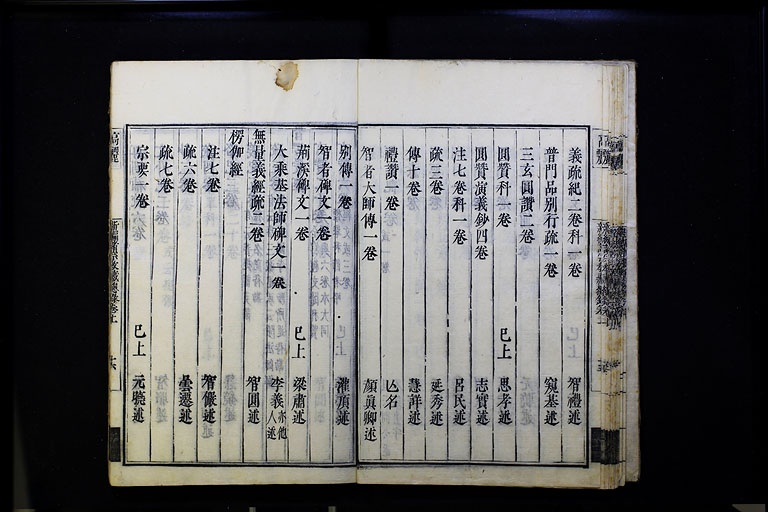 義疏紀三卷科一卷　智禮述
普門品別行疏一卷　窺基述
三玄圓讚二卷
圓贊科一卷　已上　思孝述
圓贊演義鈔四卷　志實述
注七卷科一卷　呂民述
疏三卷　延秀述
傳十卷　慧詳述
禮讚一卷　亾名
智者大師傳一卷　顏眞卿述
別傳一卷　灌頂述
智者碑文一卷
荊溪碑文一卷　已上　梁肅述
大乘基法師碑文一卷　李義　亦他人述
無量義經疏二卷　智圓述
楞伽經
注七卷　智儼述
疏六卷　曇遷述
疏七卷
宗要一卷　已上　元曉述